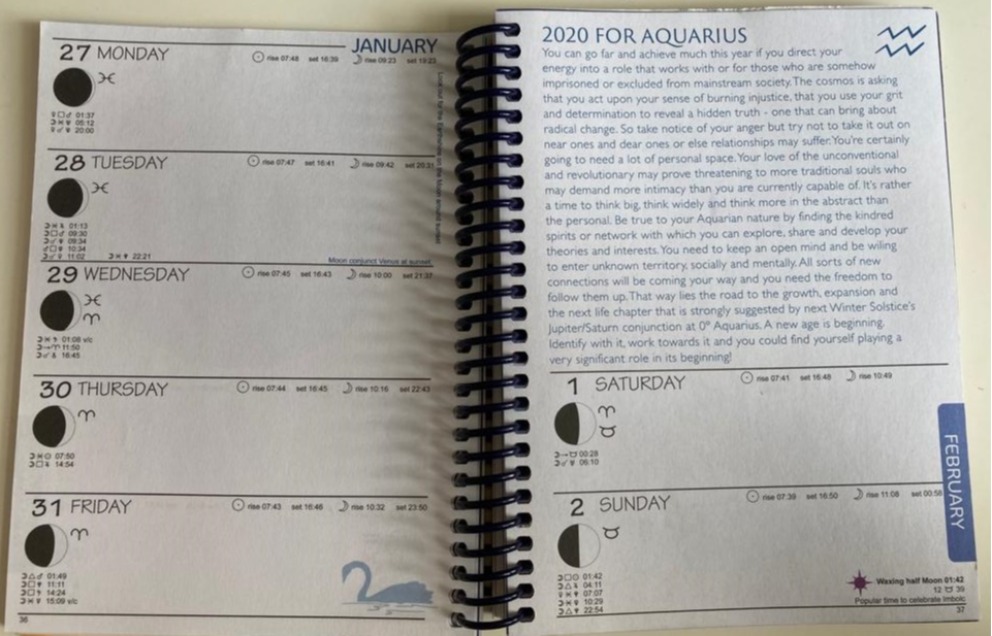 JANUARY
27 MONDAY
rise 07:48 set 16:39 rise 09:23 set 19:23
♓
♀□♂ 01:37
☽⚹♅ 05:12
20:00
28 TUESDAY
rise 07:47 set 16:41 rise 09:42 set 20:31
♓
01:13
☽□♂ 09:30
09:34
10:34
☽☌♀ 11:02 22:21
Moon conjunct Venus at sunset
29 WEDNESDAY
rise 07:45 set 16:43 rise 10:00 set 21:37
♓
♈
01:08 v/c
☽→♈ 11:50
16:45
30 THURSDAY
rise 07:44 set 16:45 rise 10:16 set 22:43
♈
☽⚹☉ 07:50
14:54
31 FRIDAY
rise 07:43 set 16:46 rise 10:32 set 23:50
♈
☽△♂ 01:49
11:11
14:24
15:09 v/c
36
2020 FOR AQUARIUS
♒
You can go far and achieve much this year if you direct your
energy into a role that works with or for those who are somehow
imprisoned or excluded from mainstream society. The cosmos is asking
that you act upon your sense of burning injustice, that you use your grit
and determination to reveal a hidden truth - one that can bring about
radical change. So take notice of your anger but try not to take it out on
near ones and dear ones or else relationships may suffer. You're certainly
going to need a lot of personal space. Your love of the unconventional
and revolutionary may prove threatening to more traditional souls who
may demand more intimacy than you are currently capable of. It's rather
a time to think big, think widely and think more in the abstract than
the personal. Be true to your Aquarian nature by finding the kindred
spirits or network with which you can explore, share and develop your
theories and interests. You need to keep an open mind and be wiling
to enter unknown territory, socially and mentally. All sorts of new
connections will be coming your way and you need the freedom to
follow them up. That way lies the road to the growth, expansion and
the next life chapter that is strongly suggested by next Winter Solstice's
Jupiter/Saturn conjunction at 0° Aquarius. A new age is beginning.
Identify with it, work towards it and you could find yourself playing a
very significant role in its beginning!
1 SATURDAY
rise 07:41 set 16:48 rise 10:49
♈
♉
☽→♉ 00:28
06:10
FEBRUARY
2 SUNDAY
rise 07:39 set 16:50 rise 11:08 set 00:58
♉
☽□☉ 01:42
04:11
07:07
10:29
22:54
Waxing half Moon 01:42
12 ♉ 39
Popular time to celebrate Imbolc
37